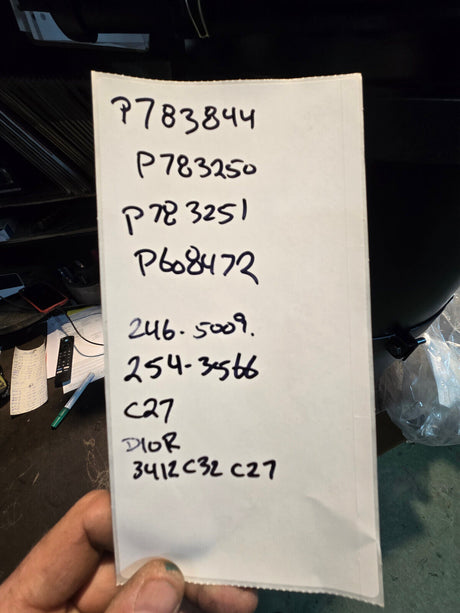 P783844
P783250
P783251
P608472
246-5009.
254-3566
C27
D10R
3412C32 C27